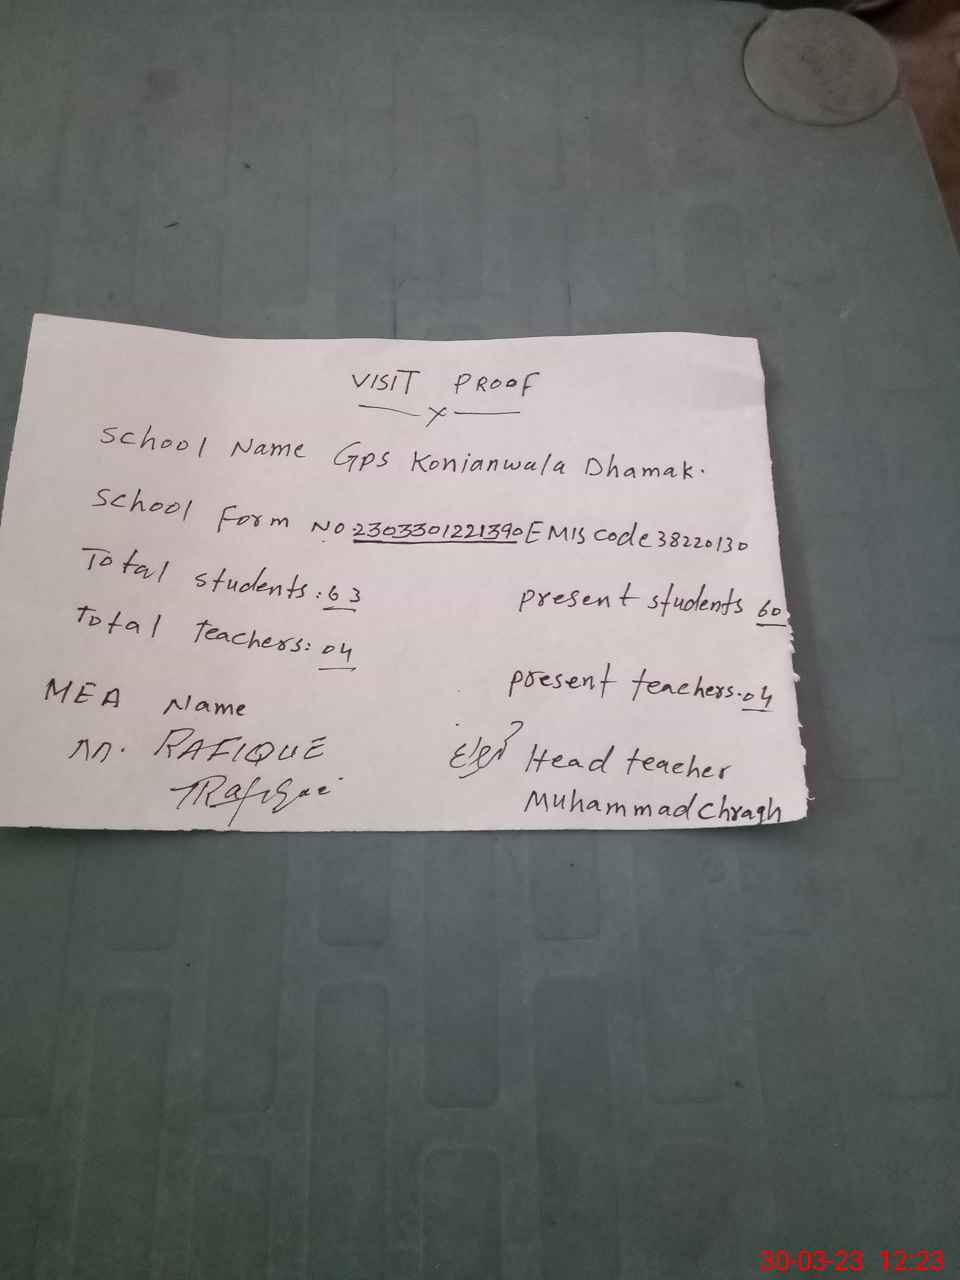 VISIT PROOF
x
School Name Gps Konianwala Dhamak.
School Form No. 2303301221390 EMIS code 38220130
Total students: 63 present students 60
Total teachers: 04 present teachers. 04
MEA Name
M. RAFIQUE Head teacher
Muhammad Chragh
30-03-23 12:23